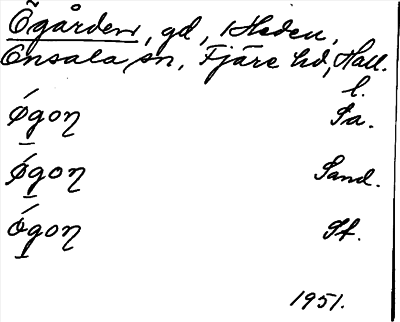 Ögården, gd, Heden,
Onsala sn, Fjäre hd, Hall.
l.
Øgoŋ Sa.
Øgoŋ Sand.
Ógoŋ Sf.
1951.